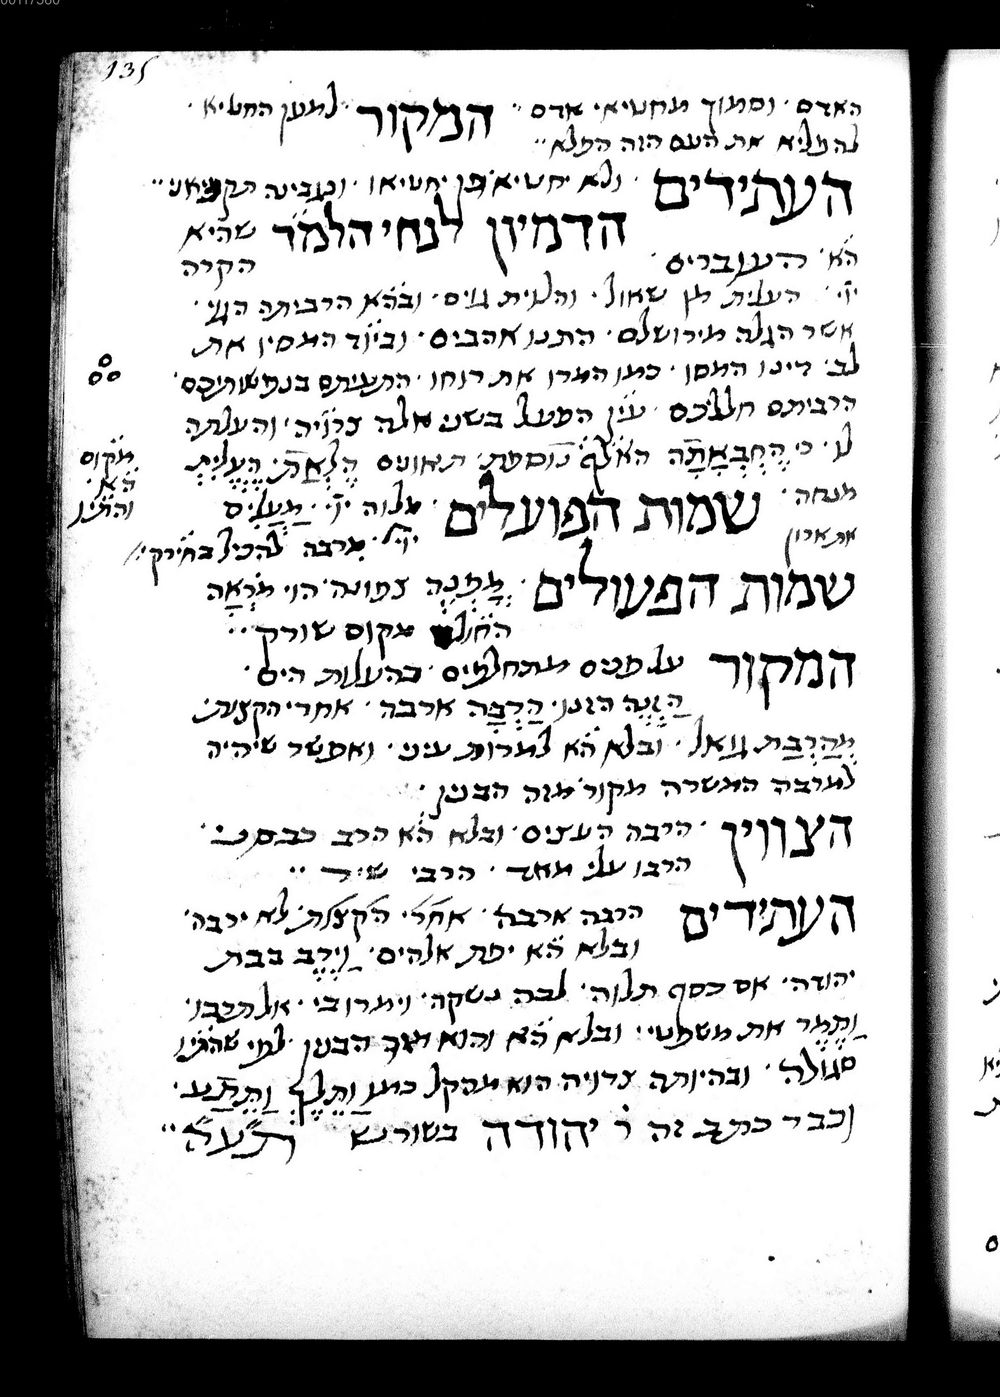 135
האדם · וסמוך מחטיאי אדם ·· המקור ·· למען החטיא ·
להמליא את העם הזה המלא ··
העתידים · ולא יחטיא פן יחטיאו · ונגבינה תקניאני ··
הדמיון לנחי הלמ̈ד שהיא
ה̈א · העוברים · הקרה
י̈י · העלית מן שאול · והלוית גוים · ובה̈א הרביתה הגוי ·
אשר הגלה מירושלם · התנו אהבים · וביו̈ד המסיו את
לב · דינו המסו · כמו המרו את רוחו · התעיתם בנפשותיכם ·
הרביתם חלליכם · עי̈ן הפעל בשני אלה צרו̈יה · והעלתה
לו · כי הֶחְבְּאַתָה הא̈לף נוספת · תאונים הֶלְאָת · הֶעֱלִיתָ
מקום
ה̈א
והתיו
מנחה · שמות הפועלים · מלוה י̈י · מַעֲלִים
את ארון י̈י · מרבה להכיל בחירק ·
שמות הפעולים · מָפְנֶה צפונה · הוי מֻרְאָה
החולם מקום שורק ··
המקור על פנים מתחלפים · בהעלות הים ·
הַזְנֵה הזנו · הַרְבָּה ארבה · אחרי הקצות ·
מֵהַרְבַּת גואל · ובלא ה̈א למרות עיני · ואפשר שיהיה
למרבה המשרה מקור מזה הבנין ·
הצוויין · הרבה העצים · ובלא ה̈א הרב כבסני
הרבו עלי מאד · הרבי שיר ··
העתידים הרבה ארבה · אחרי הקצות · לא ירבה ·
ובלא ה̈א יפת אלהים · וַיֶרֶב בבת
יהודה · אם כסף תלוה · לבה נשקה · וימרובי · אל תרבו ·
וַתֶמֶר את משפטי · ובלא ה̈א והוא תוך הבנין לפי שהתיו
סגולה · ובהיותה צרויה הוא מהקל כמו וַתֵלֶךְ וַתֵתַע ·
וכבר כתב זה ר׳ יהודה בשורש ת̈עה ··